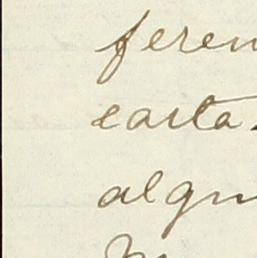 feren
carta.
algu